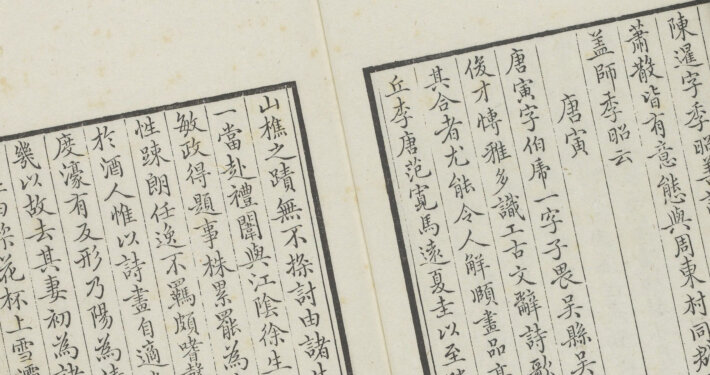 陳暹字季昭善
蕭散皆有意態與周東村同
盖師季昭云
唐寅
唐寅字伯虎一字子畏吳縣吳
俊才愽雅多識工古文辭詩歌
其合者尤能令人解頤畫品髙
丘李唐范寛馬遠夏圭以至
山樵之蹟無不探討由諸生
一當赴禮闈與江陰徐生
敏政得題事株累罷為
性踈朗任逸不羈頗嗜聲
於酒人惟以詩畫自適
度濠有反形乃陽為
㡬以故去其妻初為諸
花杯上雪